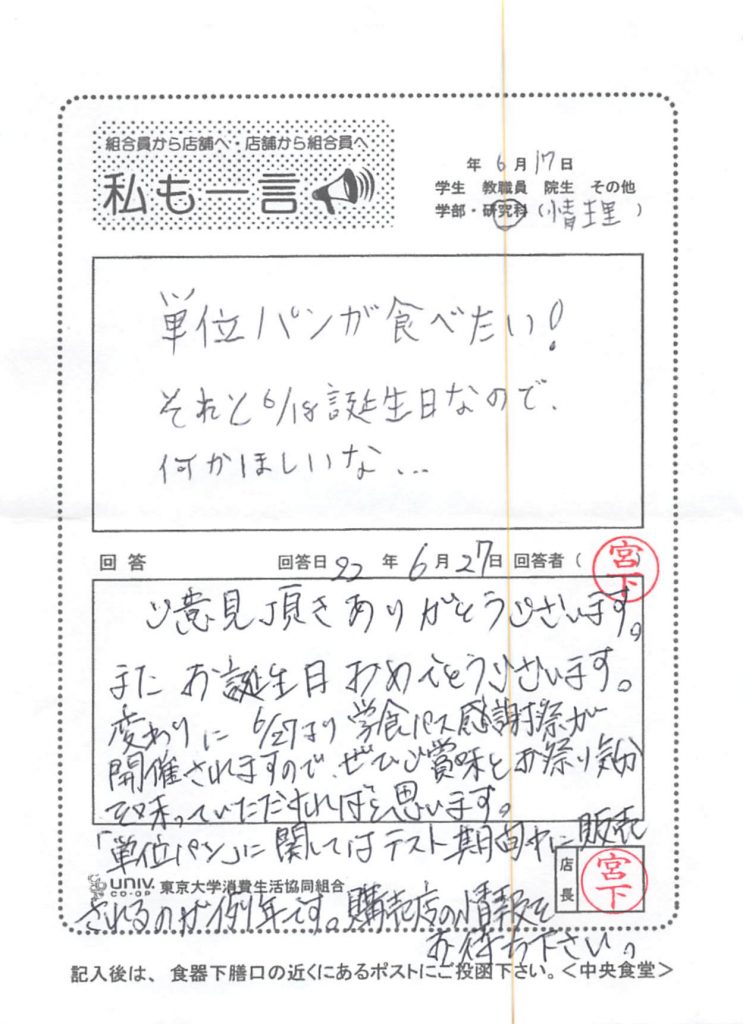 組合員から店舗へ・店舗から組合員へ
私も一言
年 6月17日
学生 教職員 院生 その他
学部・研究科（情理）
単位パンが食べたい!
それと6/18誕生日なので、
何かほしいな…
回答 回答日22年6月27日 回答者（宮下）
ご意見頂きありがとうございます。
また お誕生日 おめでとうございます。
変わりに 6/27より 学食パス感謝祭が
開催されますので、ぜひご賞味とお祭り気分
を味っていただければと思います。
「単位パン」に関してはテスト期間中に販売
店長 宮下
UNIV. CO-OP 東京大学消費生活協同組合
されるのが例年です。購売店の情報を
お待ち下さい。
記入後は、食器下膳口の近くにあるポストにご投函下さい。＜中央食堂＞